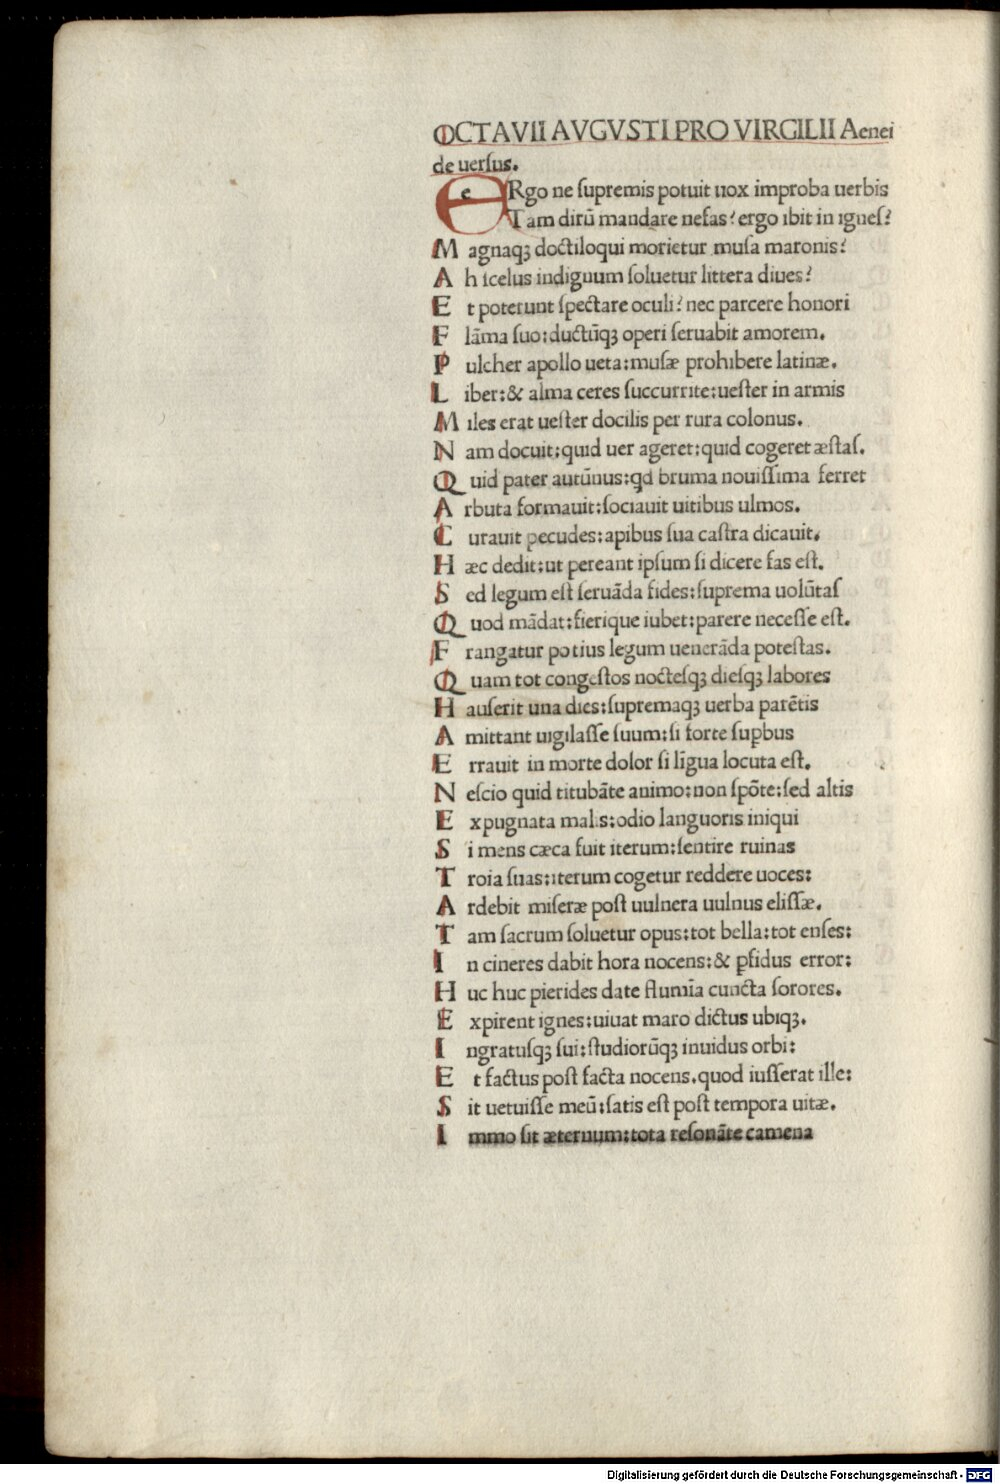 OCTAVII AVGVSTI PRO VIRGILII Aenei
de uerſus.
ERgo ne ſupremis potuit uox improba uerbis
Tam dirū mandare nefas? ergo ibit in igneſ?
Magnaqꝫ doctiloqui morietur muſa maronis?
Ah ſcelus indignum ſoluetur littera diues?
Et poterunt ſpectare oculi? nec parcere honori
Flāma ſuo: ductūqꝫ operi ſeruabit amorem.
Pulcher apollo ueta: muſæ prohibere latinæ.
Liber: & alma ceres ſuccurrite: ueſter in armis
Miles erat ueſter docilis per rura colonus.
Nam docuit: quid uer ageret: quid cogeret æſtaſ.
Quid pater autūnus: qd bruma nouiſſima ferret
Arbuta formauit: ſociauit uitibus ulmos.
Curauit pecudes: apibus ſua caſtra dicauit.
Hæc dedit: ut pereant ipſum ſi dicere fas eſt.
Sed legum eſt ſeruāda fides: ſuprema uolūtaſ
Quod mādat: fierique iubet: parere neceſſe eſt.
Frangatur potius legum uenerāda poteſtas.
Quam tot congeſtos nocteſqꝫ dieſqꝫ labores
Hauſerit una dies: ſupremaqꝫ uerba parētis
Amittant uigilaſſe ſuum: ſi forte ſupbus
Errauit in morte dolor ſi līgua locuta eſt.
Neſcio quid titubāte animo: non ſpōte: ſed altis
Expugnata malis: odio languoris iniqui
Si mens cæca fuit iterum: ſentire ruinas
Troia ſuas: iterum cogetur reddere uoces:
Ardebit miſeræ poſt uulnera uulnus eliſſæ.
Tam ſacrum ſoluetur opus: tot bella: tot enſes:
In cineres dabit hora nocens: & ꝑfidus error:
Huc huc pierides date flumīa cuncta ſorores.
Expirent ignes: uiuat maro dictus ubiqꝫ.
Ingratuſqꝫ ſui: ſtudiorūqꝫ inuidus orbi:
Et factus poſt facta nocens. quod iuſſerat ille:
Sit uetuiſſe meū: ſatis eſt poſt tempora uitæ.
Immo ſit æternum: tota reſonāte camena
Digitalisierung gefördert durch die Deutsche Forschungsgemeinschaft - DFG